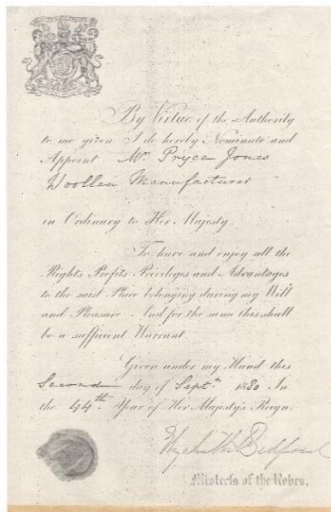 By Virtue of the Authority
to me given I do hereby Nominate and
Appoint Mr. Pryce Jones
Woollen Manufacturer
in Ordinary to Her Majesty.
To have and enjoy all the
Rights, Profits, Privileges and Advantages
to the said Place belonging during my Will
and Pleasure. And for the same this shall
be a sufficient Warrant.
Given under my Hand this
Second day of Septr. 1880. In
the 44th. Year of Her Majesty's Reign.
Bedford
Mistress of the Robes.